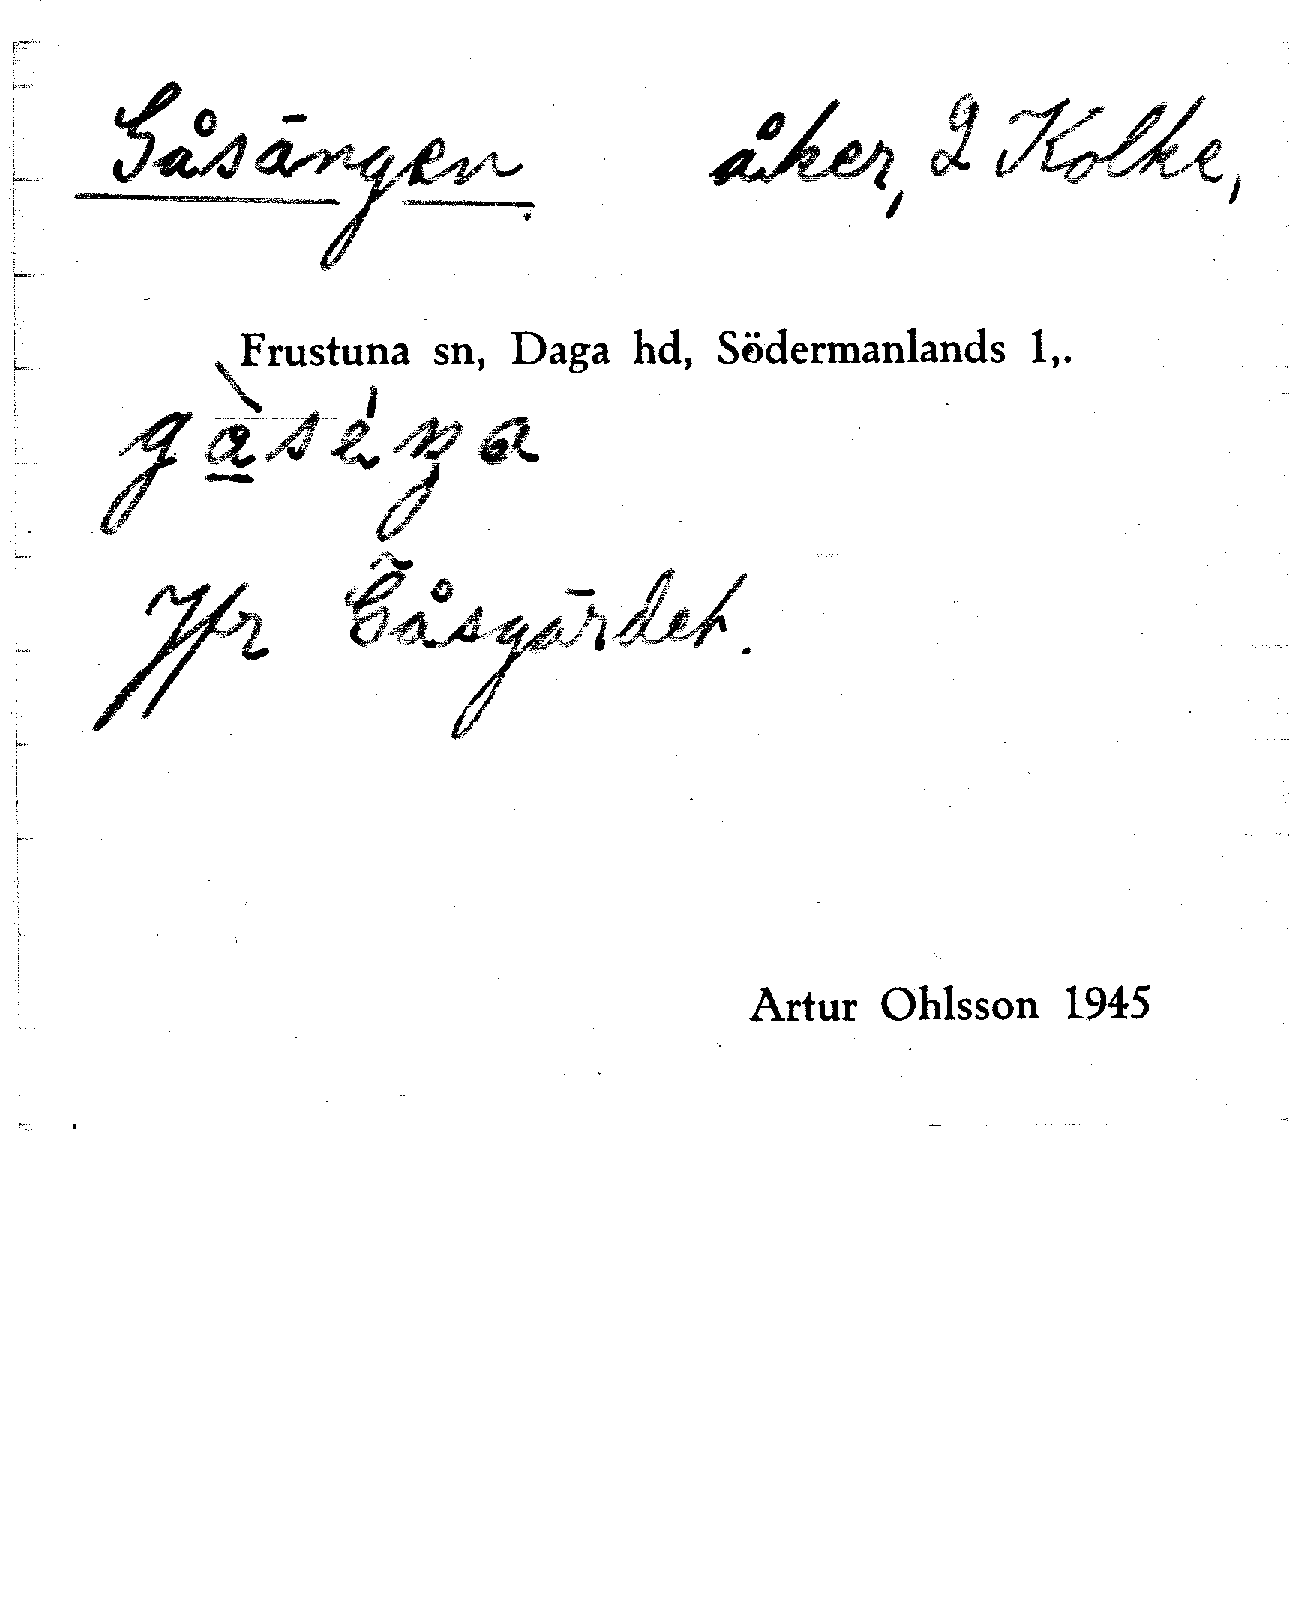 Gåsängen åker, 2 Kolke,
Frustuna sn, Daga hd, Södermanlands l,.
Jfr Gåsgärdet.
Artur Ohlsson 1945